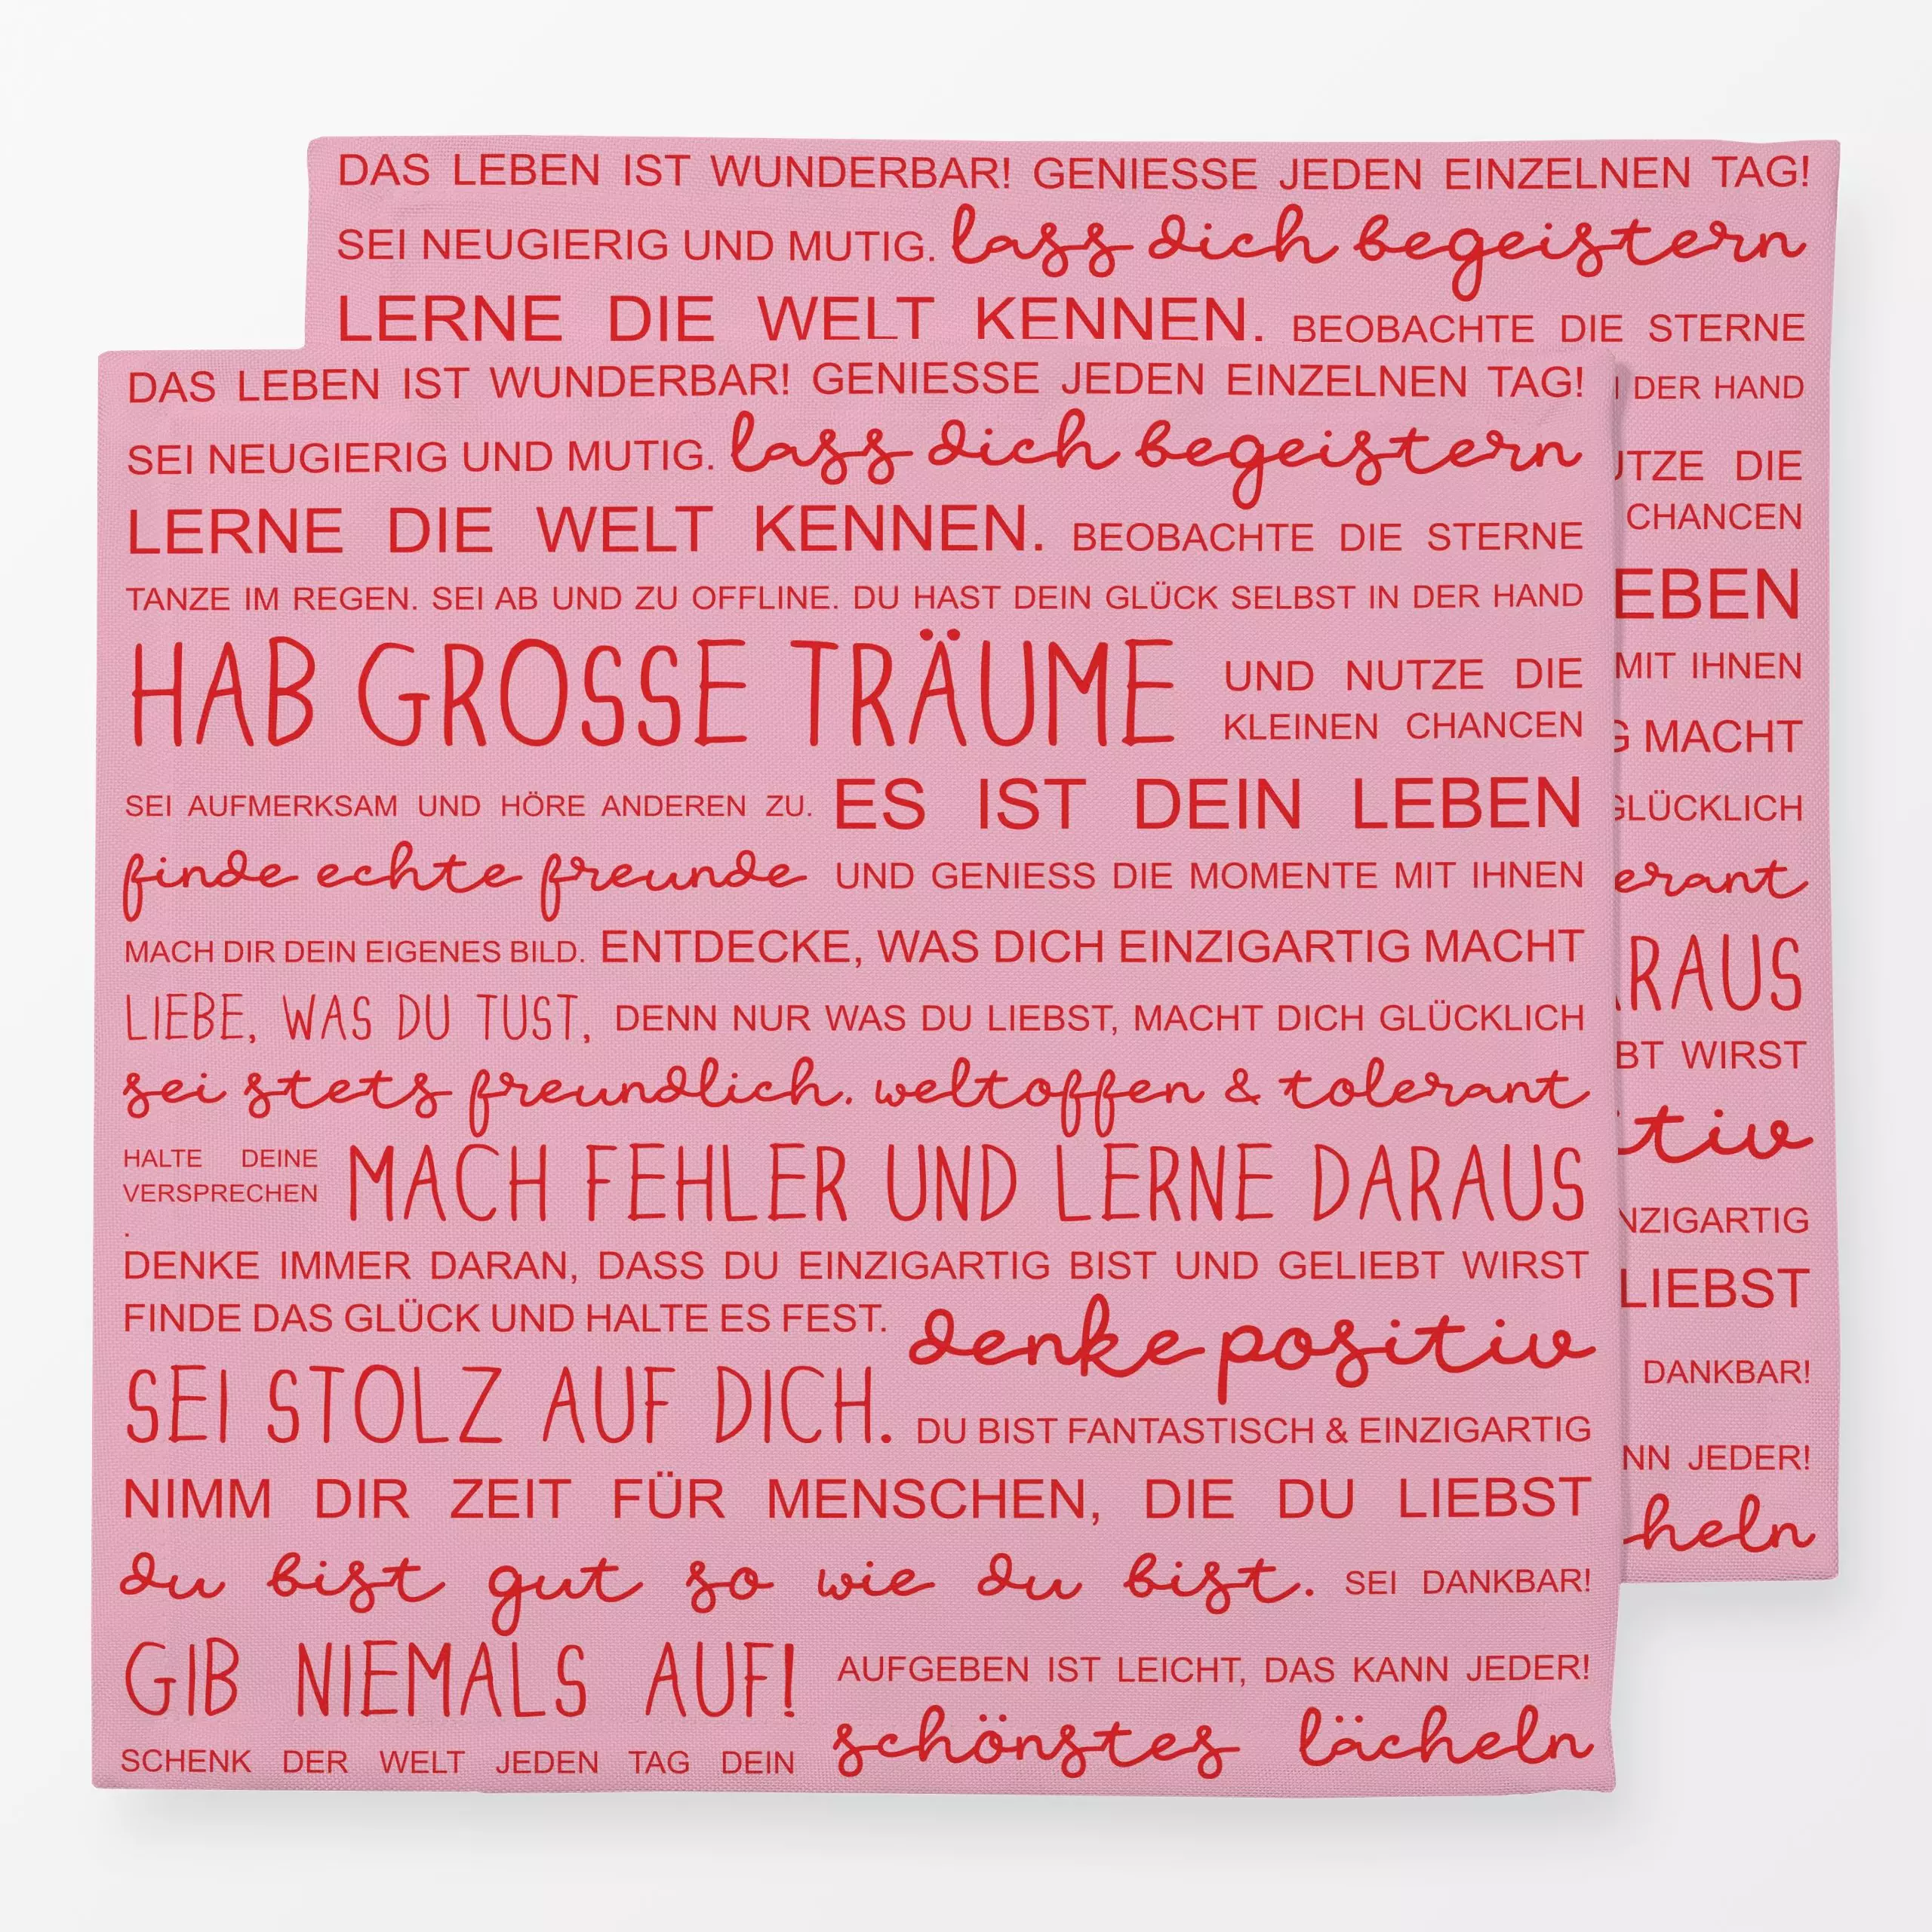 DAS LEBEN IST WUNDERBAR! GENIESSE JEDEN EINZELNEN TAG!
SEI NEUGIERIG UND MUTIG. lass dich begeistern
LERNE DIE WELT KENNEN. BEOBACHTE DIE STERNE
DER HAND
DIE
CHANCEN
EBEN
MIT IHNEN
MACHT
GLÜCKLICH
erant
RAUS
BT WIRST
tiv
NZIGARTIG
LIEBST
DANKBAR!
NN JEDER!
heln
DAS LEBEN IST WUNDERBAR! GENIESSE JEDEN EINZELNEN TAG!
SEI NEUGIERIG UND MUTIG. lass dich begeistern
LERNE DIE WELT KENNEN. BEOBACHTE DIE STERNE
TANZE IM REGEN. SEI AB UND ZU OFFLINE. DU HAST DEIN GLÜCK SELBST IN DER HAND
HAB GROSSE TRÄUME UND NUTZE DIE
KLEINEN CHANCEN
SEI AUFMERKSAM UND HÖRE ANDEREN ZU. ES IST DEIN LEBEN
finde echte freunde UND GENIESS DIE MOMENTE MIT IHNEN
MACH DIR DEIN EIGENES BILD. ENTDECKE, WAS DICH EINZIGARTIG MACHT
LIEBE, WAS DU TUST, DENN NUR WAS DU LIEBST, MACHT DICH GLÜCKLICH
sei stets freundlich. weltoffen & tolerant
HALTE DEINE
VERSPRECHEN
. MACH FEHLER UND LERNE DARAUS
DENKE IMMER DARAN, DASS DU EINZIGARTIG BIST UND GELIEBT WIRST
FINDE DAS GLÜCK UND HALTE ES FEST. denke positiv
SEI STOLZ AUF DICH. DU BIST FANTASTISCH & EINZIGARTIG
NIMM DIR ZEIT FÜR MENSCHEN, DIE DU LIEBST
du bist gut so wie du bist. SEI DANKBAR!
GIB NIEMALS AUF! AUFGEBEN IST LEICHT, DAS KANN JEDER!
SCHENK DER WELT JEDEN TAG DEIN schönstes lächeln